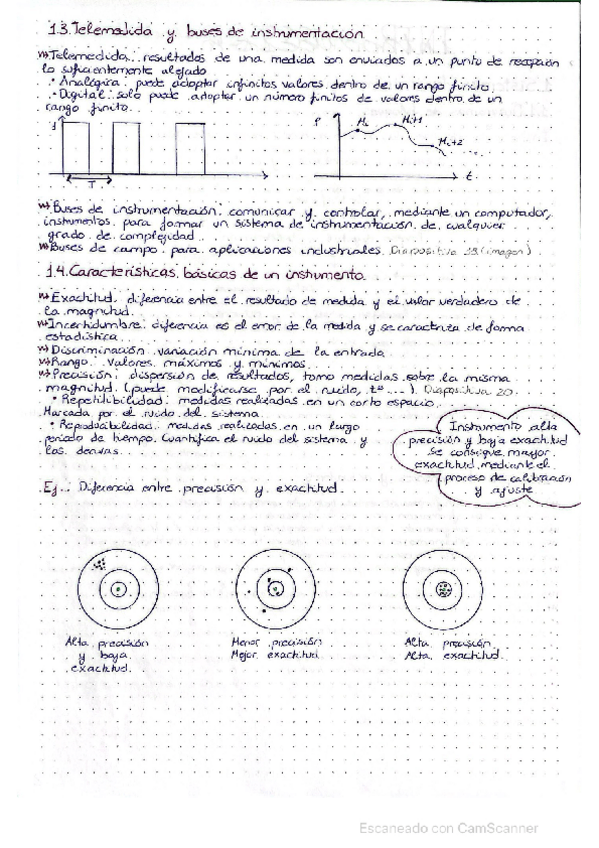 1.3. Telemedida y buses de instrumentación
Telemedida: resultados de una medida son enviados a un punto de recepción
lo suficientemente alejado
• Analógica: puede adoptar infinitos valores dentro de un rango finito.
• Digital: solo puede adoptar un número finitos de valores dentro de un
rango finito.
T
P
Mi
Mi+1
Mi+2
t
Buses de instrumentación: comunicar y controlar, mediante un computador,
instrumentos para formar un sistema de instrumentación de cualquier
grado de complejidad
Buses de campo para aplicaciones industriales Diapositiva 18 (imagen)
1.4. Características básicas de un instrumento
Exactitud: diferencia entre el resultado de medida y el valor verdadero de
la magnitud.
Incertidumbre: diferencia es el error de la medida y se caracteriza de forma
estadística.
Discriminación variación mínima de la entrada
Rango: valores máximos y mínimos
Precisión: dispersión de resultados, tomo medidas sobre la misma
magnitud. (puede modificarse por el ruido, tª ...). Diapositiva 20
• Repetibilidad: medidas realizadas en un corto espacio
Marcada por el ruido del sistema
• Reproducibilidad: medidas realizadas en un largo
periodo de tiempo. Cuantifica el ruido del sistema y
las derivas.
Instrumento alta
precisión y baja exactitud
se consigue mayor
exactitud mediante el
proceso de calibración
y ajuste
Ej.. Diferencia entre precisión y exactitud.
Alta precisión
y baja
exactitud.
Menor precisión
Mejor exactitud
Alta precisión
Alta exactitud.
Escaneado con CamScanner